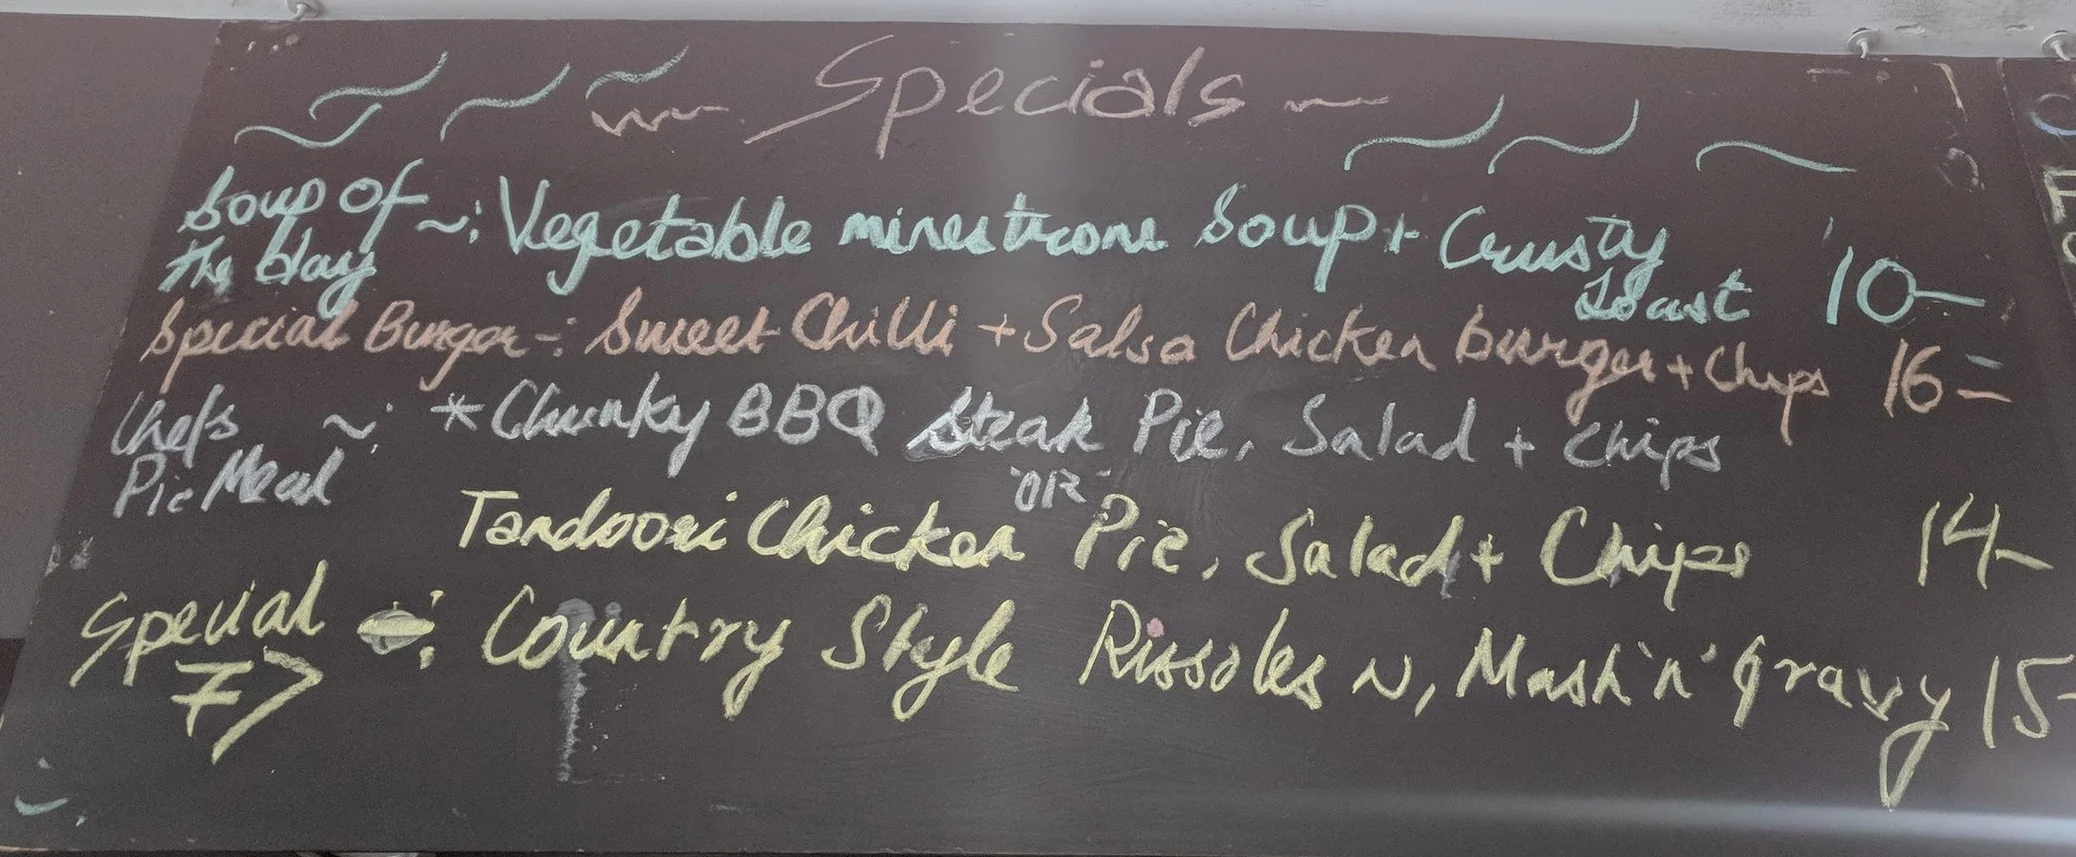 Specials
Soup of the day ~: Vegetable minestrone Soup + Crusty Toast 10-
Special Burger -: Sweet Chilli + Salsa Chicken burger + Chips 16=
Chefs Pie Meal ~: * Chunky BBQ Steak Pie, Salad + Chips
"OR"
Tandoori Chicken Pie, Salad + Chips 14-
Special : Country Style Rissoles N, Mash 'n' Gravy 15-